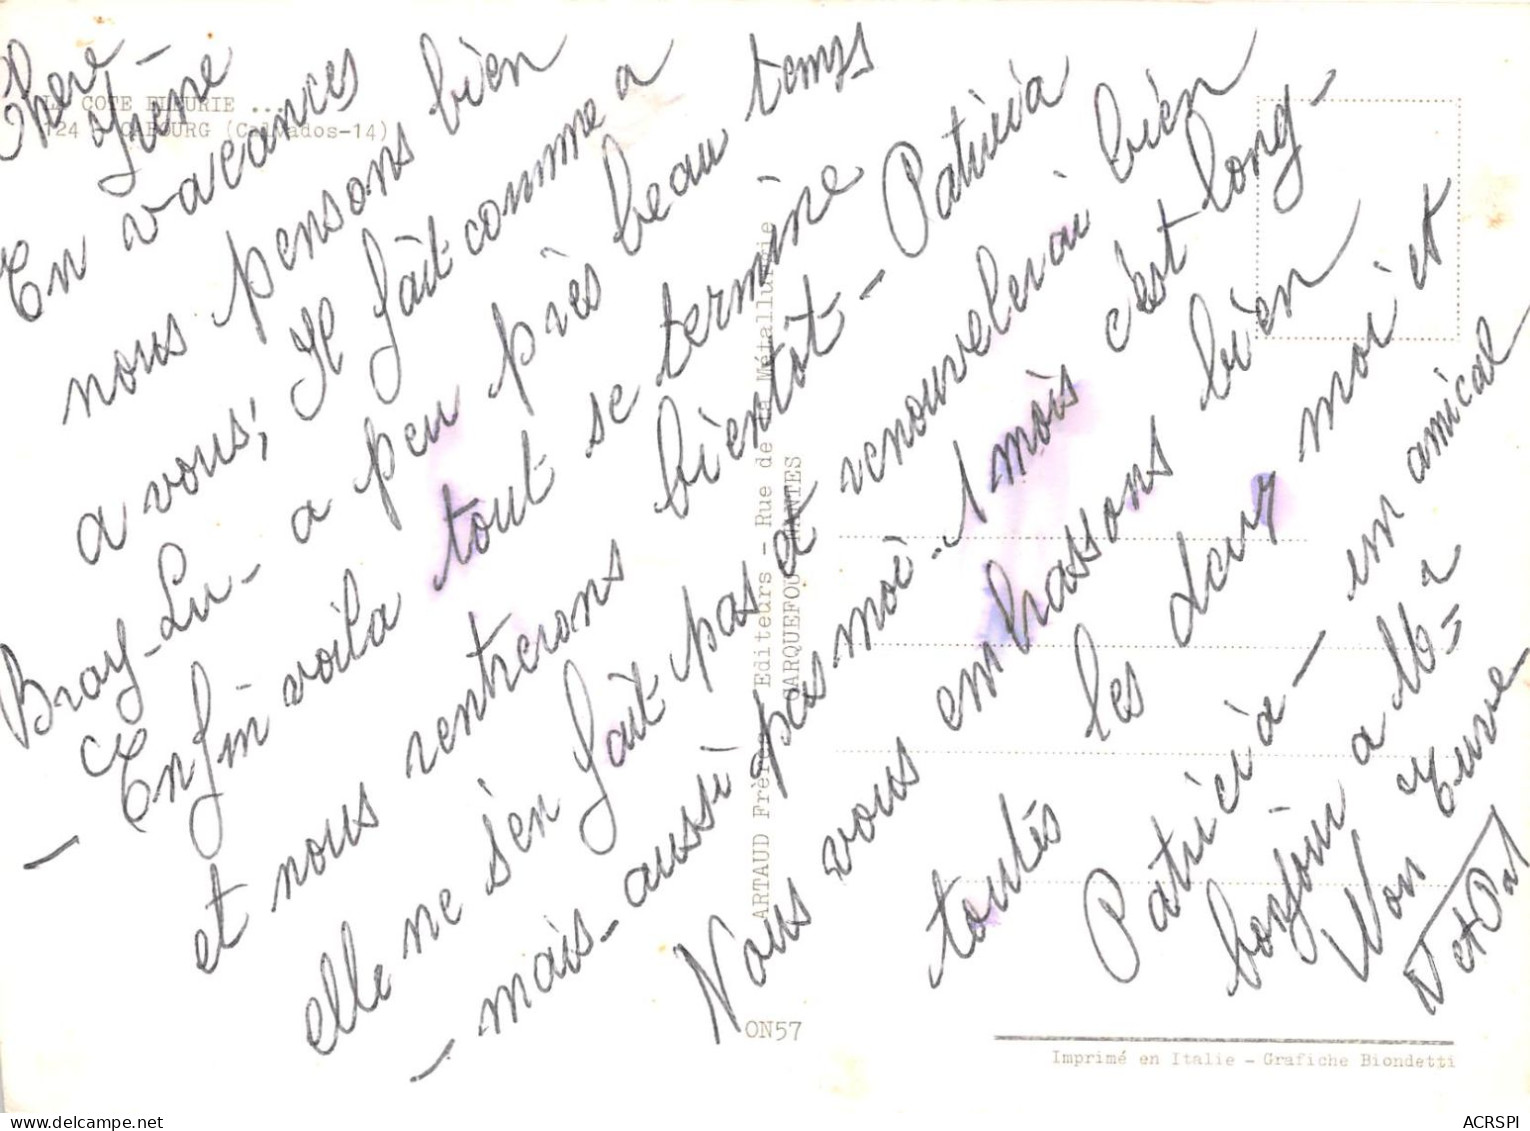 LA COTE FLEURIE ...
124 - CABOURG (Calvados-14)
Chère
Irène
En vacances
nous pensons bien
a vous; Il fait comme a
Bray-Lu- a peu près beau temps
- Enfin voila tout se termine
et nous rentrerons bientôt - Patricia
elle ne s'en fait pas a renouvelerai bien
- mais- aussi pas moi- 1 mois c'est long-
Nous vous embrassons bien
toutes les deux moi et
Patricia - un amical
bonjour a Mr a
Mon
et Pat
ARTAUD Frères Editeurs - Rue de la Métallurgie
CARQUEFOU NANTES
ON57
Imprimé en Italie - Grafiche Biondetti
ACRSPI